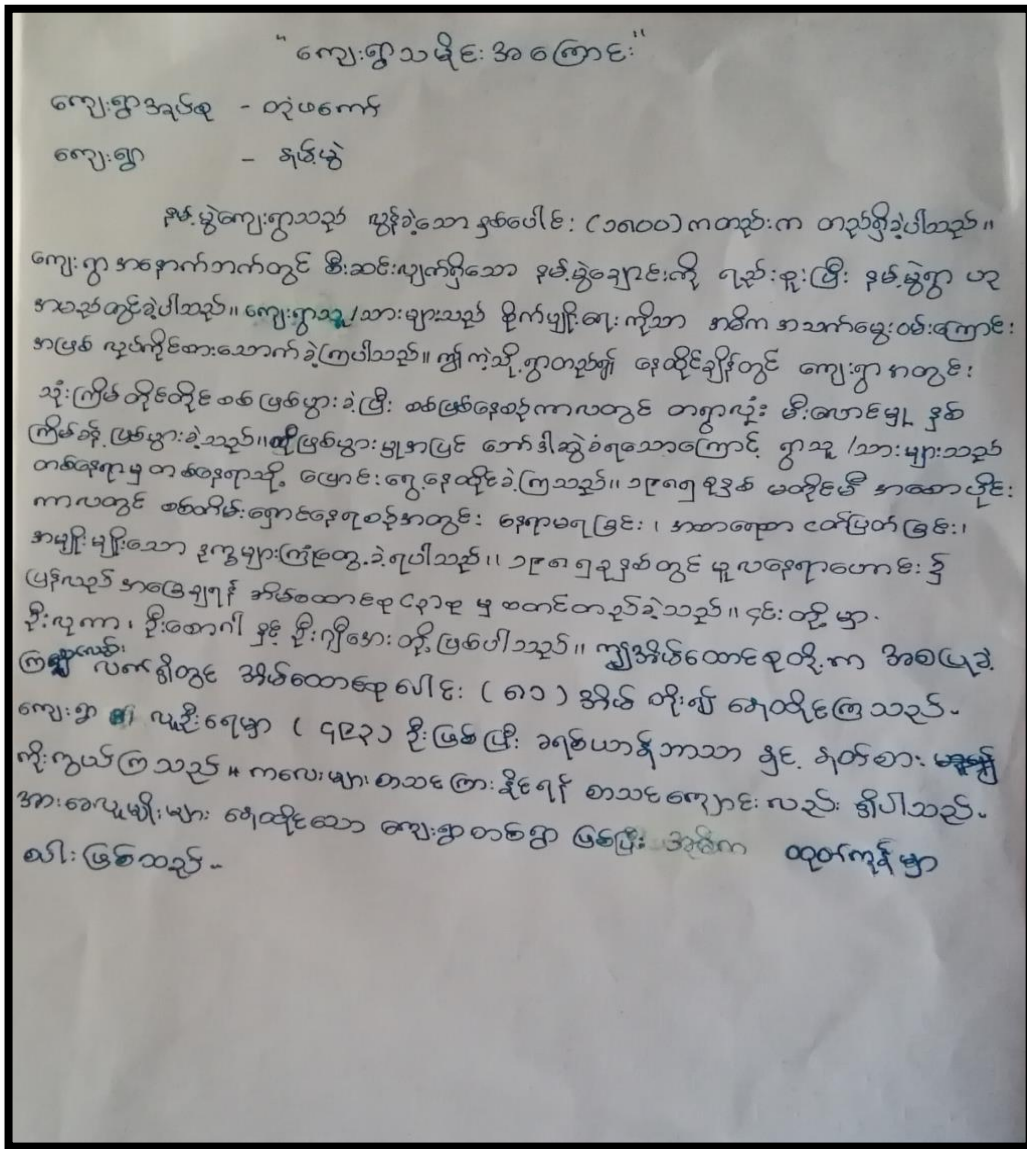 "ကျေးရွာသမိုင်းအကြောင်း"
ကျေးရွာအုပ်စု - တုံဖကော်
ကျေးရွာ - နမ့်မွဲ
နမ့်မွဲကျေးရွာသည် လွန်ခဲ့သော နှစ်ပေါင်း (၁၈၀၀) ကတည်းက တည်ရှိခဲ့ပါသည်။
ကျေးရွာအနောက်ဘက်တွင် စီးဆင်းလျက်ရှိသော နမ့်မွဲချောင်းကို ရည်စူးပြီး နမ့်မွဲရွာ ဟု
အမည်တွင်ခဲ့ပါသည်။ ကျေးရွာသူ/သားများသည် စိုက်ပျိုးရေးကိုသာ အဓိက အသက်မွေးဝမ်းကြောင်း
အဖြစ် လုပ်ကိုင်စားသောက်ခဲ့ကြပါသည်။ ဤကဲ့သို့ ရွာတည်၍ နေထိုင်ချိန်တွင် ကျေးရွာအတွင်း
သုံးကြိမ်တိုင်တိုင် စစ်ဖြစ်ပွားခဲ့ပြီး စစ်ဖြစ်နေစဉ်ကာလတွင် တရွာလုံး မီးလောင်မှု နှစ်
ကြိမ်ခန့် ဖြစ်ပွားခဲ့သည်။ ထိုဖြစ်ပွားမှုအပြင် ပေါ်တာဆွဲခံရသောကြောင့် ရွာသူ/သားများသည်
တစ်နေရာမှ တစ်နေရာသို့ ပြောင်းရွှေ့နေထိုင်ခဲ့ကြသည်။ ၁၉၈၅ ခုနှစ် မတိုင်မီ အစောပိုင်း
ကာလတွင် စစ်တိမ်းရှောင်နေရစဉ်အတွင်း နေရာမရခြင်း၊ အစာရေစာ ငတ်ပြတ်ခြင်း၊
အမျိုးမျိုးသော ဒုက္ခများကြုံတွေ့ခဲ့ရပါသည်။ ၁၉၈၅ ခုနှစ်တွင် မူလနေရာဟောင်း၌
ပြန်လည် အခြေချရန် အိမ်ထောင်စု ၃ စု မှ စတင်တည်ခဲ့သည်။ ၎င်းတို့မှာ
ဦးလူကာ၊ ဦးဇောဂါ နှင့် ဦးဂျီအေး တို့ဖြစ်ပါသည်။ ဤအိမ်ထောင်စုတို့က အစပြုခဲ့
ကြသော်လည်း လက်ရှိတွင် အိမ်ထောင်စုပေါင်း (၈၁) အိမ် တိုး၍ နေထိုင်ကြသည်။
ကျေးရွာ၏ လူဦးရေမှာ (၄၉၃) ဦးဖြစ်ပြီး ခရစ်ယာန်ဘာသာ နှင့် နတ်စား
ကိုးကွယ်ကြသည်။ ကလေးများစာသင်ကြားနိုင်ရန် စာသင်ကျောင်းလည်း ရှိပါသည်။
အားခေလူမျိုးများ နေထိုင်သော ကျေးရွာတစ်ရွာ ဖြစ်ပြီး အဓိက ထုတ်ကုန်မှာ
ဖြစ်သည်။